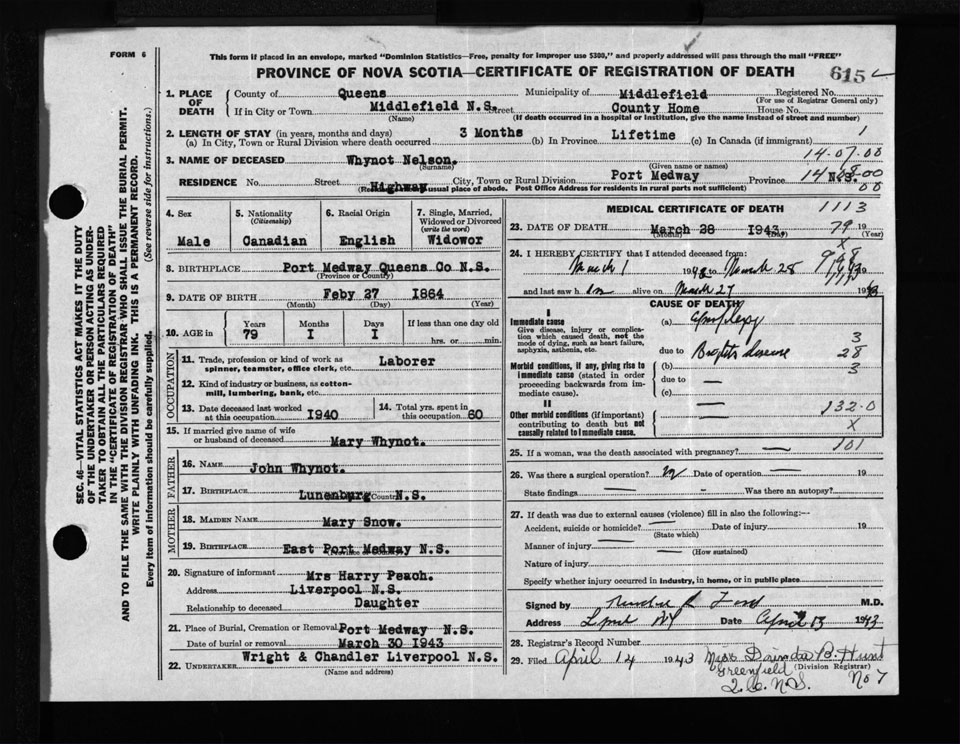 FORM 6
This form if placed in an envelope, marked "Dominion Statistics—Free, penalty for improper use $300," and properly addressed will pass through the mail "FREE"
PROVINCE OF NOVA SCOTIA—CERTIFICATE OF REGISTRATION OF DEATH
615
SEC. 46—VITAL STATISTICS ACT MAKES IT THE DUTY
OF THE UNDERTAKER OR PERSON ACTING AS UNDER-
TAKER TO OBTAIN ALL THE PARTICULARS REQUIRED
IN THE "CERTIFICATE OF REGISTRATION OF DEATH"
AND TO FILE THE SAME WITH THE DIVISION REGISTRAR WHO SHALL ISSUE THE BURIAL PERMIT.
WRITE PLAINLY WITH UNFADING INK. THIS IS A PERMANENT RECORD.
Every item of information should be carefully supplied. (See reverse side for instructions.)
1. PLACE OF DEATH County of Queens Municipality of Middlefield Registered No.
(For use of Registrar General only)
If in City or Town Middlefield N.S. Street County Home House No.
(Name) (If death occurred in a hospital or institution, give the name instead of street and number)
2. LENGTH OF STAY (in years, months and days)
(a) In City, Town or Rural Division where death occurred 3 Months (b) In Province Lifetime (c) In Canada (if immigrant) 1
14-07-00
3. NAME OF DECEASED Whynot Nelson.
(Surname) (Given name or names)
RESIDENCE No. Street Highway City, Town or Rural Division Port Medway Province N.S.
usual place of abode. Post Office Address for residents in rural parts not sufficient)
4. Sex
Male
5. Nationality
(Citizenship)
Canadian
6. Racial Origin
English
7. Single, Married,
Widowed or Divorced
(write the word)
Widowor
8. BIRTHPLACE Port Medway Queens Co N.S.
(Province or Country)
9. DATE OF BIRTH Feby 27 1864
(Month) (Day) (Year)
10. AGE in Years Months Days If less than one day old
79 1 1 hrs. or min.
OCCUPATION
11. Trade, profession or kind of work as
spinner, teamster, office clerk, etc. Laborer
12. Kind of industry or business, as cotton-
mill, lumbering, bank, etc.
13. Date deceased last worked
at this occupation 1940
14. Total yrs. spent in
this occupation 60
15. If married give name of wife
or husband of deceased Mary Whynot.
FATHER
16. NAME John Whynot.
17. BIRTHPLACE Lunenburg N.S.
MOTHER
18. MAIDEN NAME Mary Snow.
19. BIRTHPLACE East Port Medway N.S.
20. Signature of informant Mrs Harry Peach.
Address Liverpool N.S.
Relationship to deceased Daughter
21. Place of Burial, Cremation or Removal Port Medway N.S.
Date of burial or removal March 30 1943
22. UNDERTAKER Wright & Chandler Liverpool N.S.
(Name and address)
MEDICAL CERTIFICATE OF DEATH 1113
23. DATE OF DEATH March 28 1943 19
(Month) (Day) (Year)
79
X
24. I HEREBY CERTIFY that I attended deceased from:
March 1 1943 to March 28 19
and last saw h im alive on March 27 1943
CAUSE OF DEATH
I
Immediate cause
Give disease, injury or complica-
tion which caused death, not the
mode of dying, such as heart failure,
asphyxia, asthenia, etc.
(a) Apoplexy
due to Brights disease
3
28
3
Morbid conditions, if any, giving rise to
immediate cause (stated in order
proceeding backwards from im-
mediate cause).
(b)
due to —
(c) —
II
Other morbid conditions (if important)
contributing to death but not
causally related to immediate cause.
132-0
X
101
25. If a woman, was the death associated with pregnancy? —
26. Was there a surgical operation? no Date of operation — 19
State findings — Was there an autopsy?
27. If death was due to external causes (violence) fill in also the following:—
Accident, suicide or homicide? — Date of injury 19
(State which)
Manner of injury —
(How sustained)
Nature of injury
Specify whether injury occurred in industry, in home, or in public place
Signed by M.D.
Address Date April 13 1943
28. Registrar's Record Number
29. Filed April 14 1943 Dorinda B. Hunt
(Division Registrar)
Greenfield
Q. Co. N.S. No 7